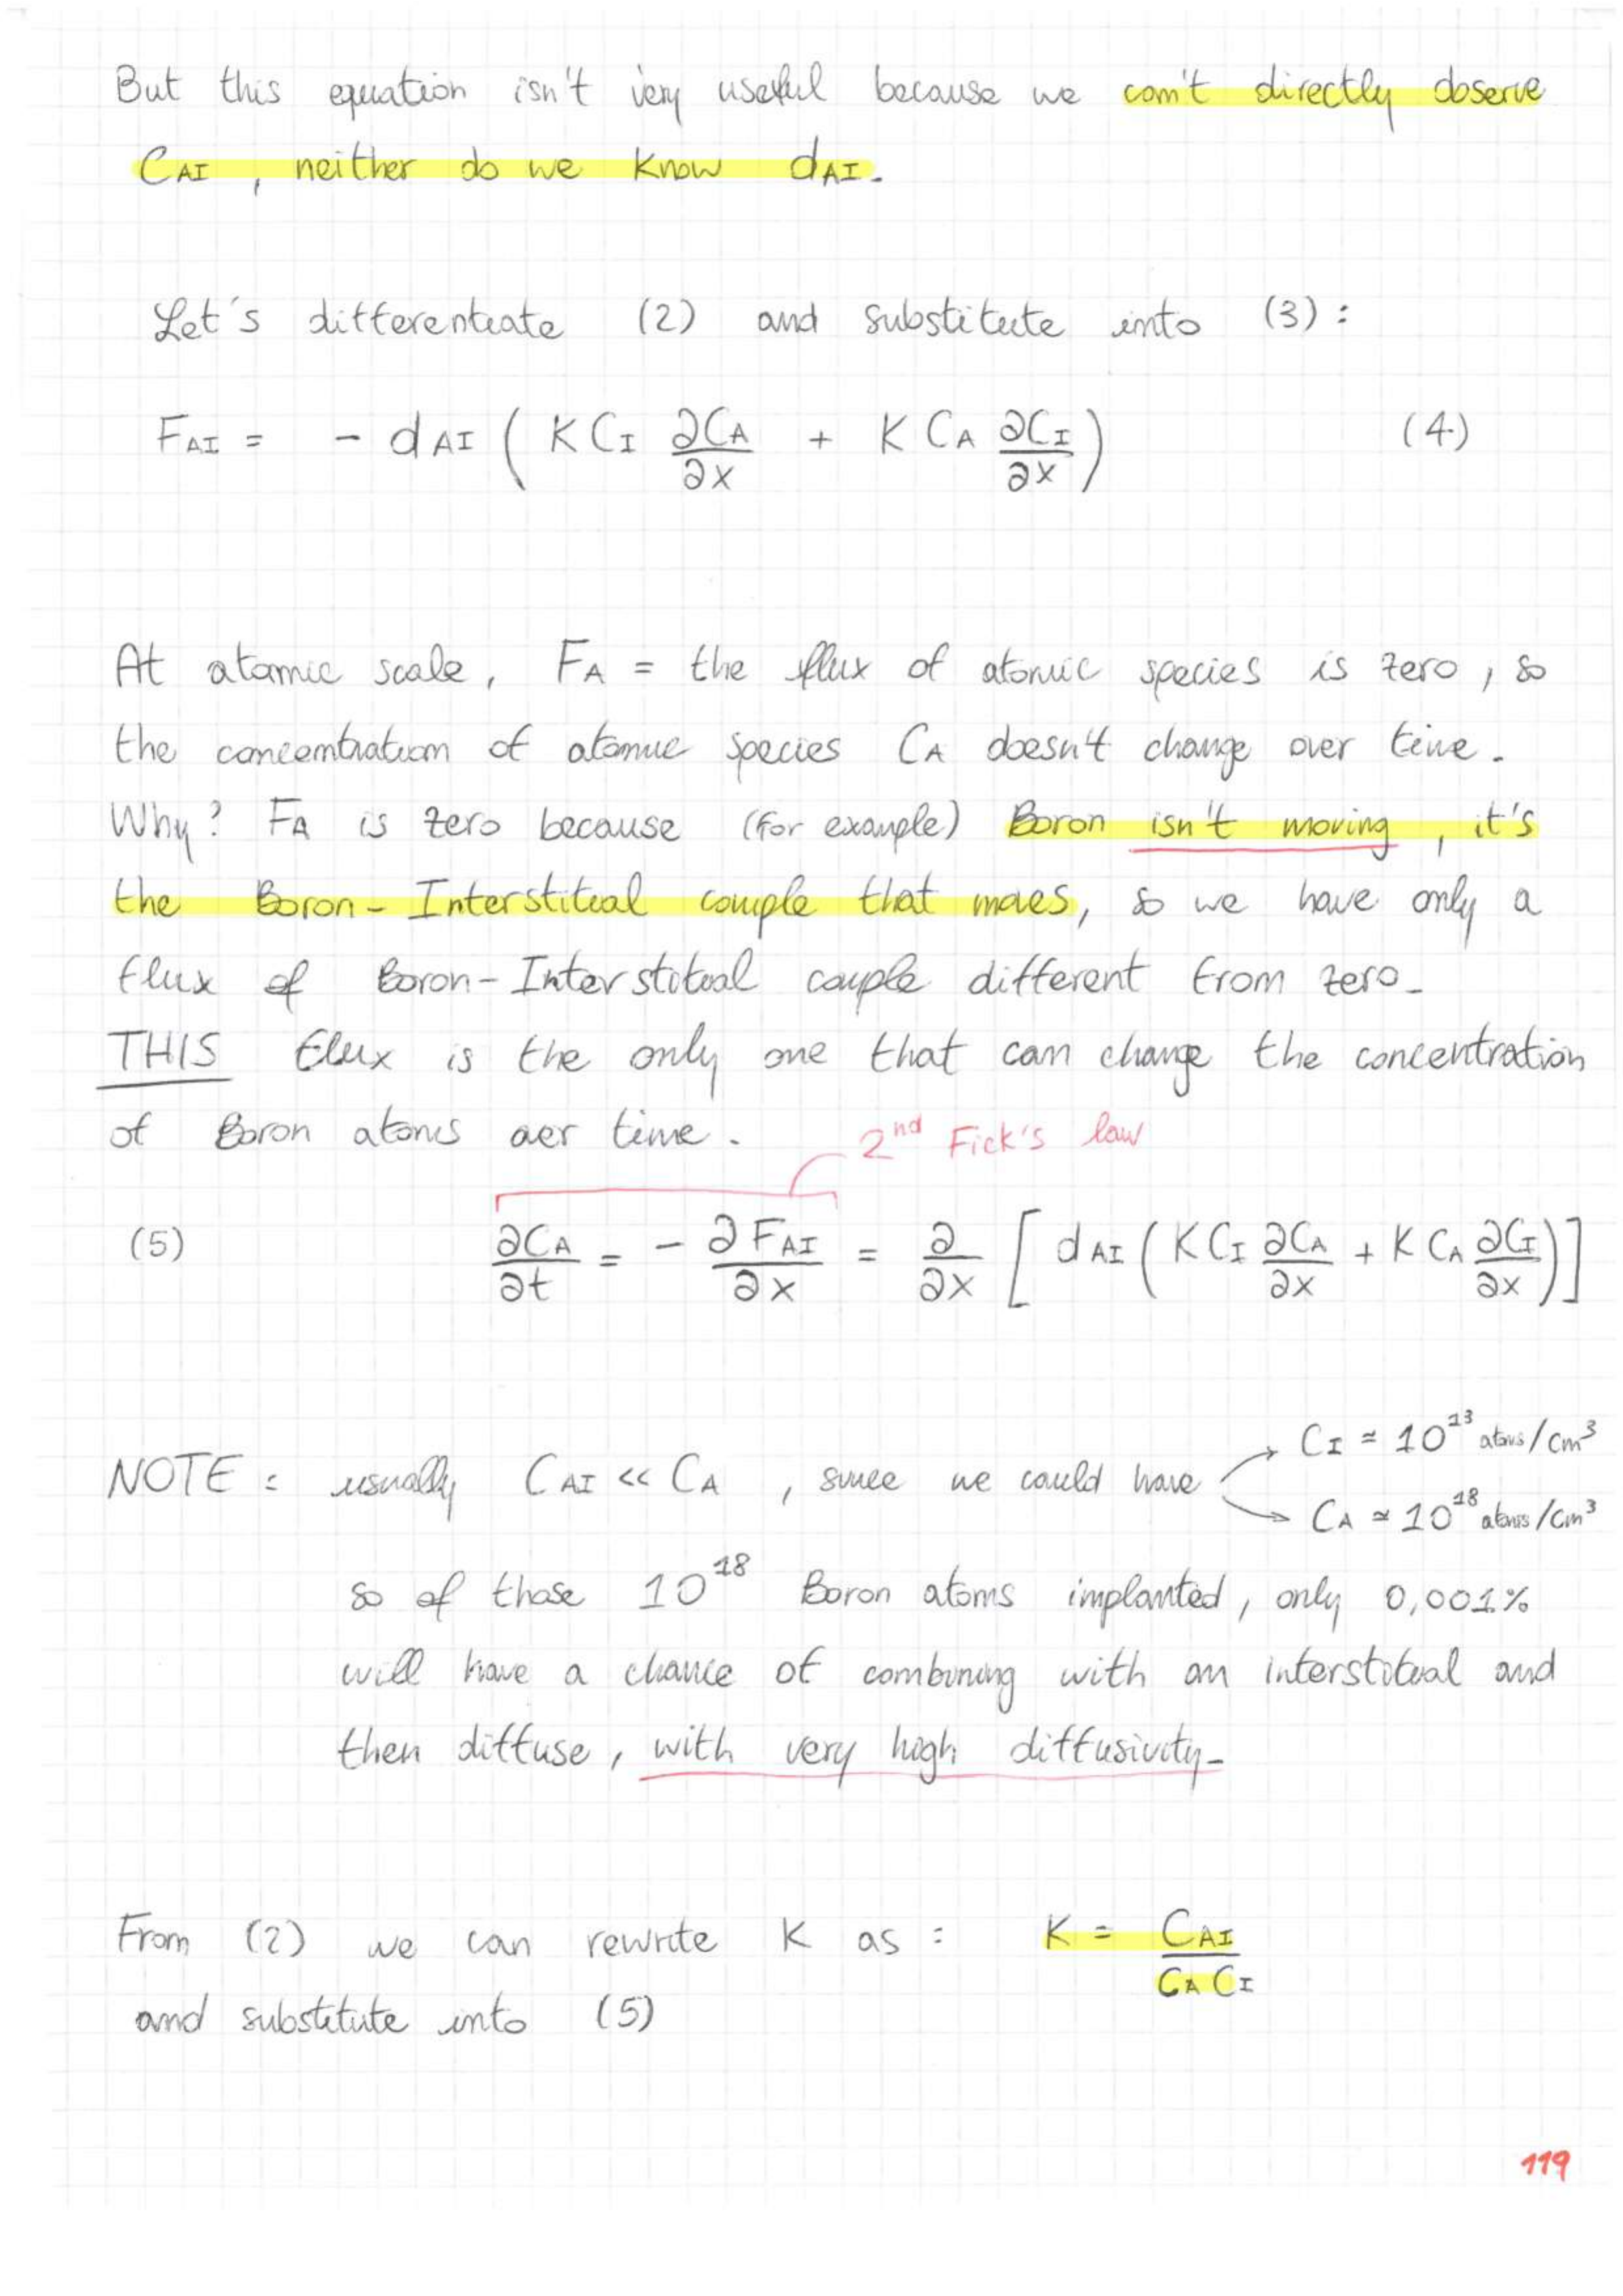 But this equation isn't very useful because we can't directly observe
C_AI , neither do we know d_AI.
Let's differentiate (2) and substitute into (3) :
F_AI = - d_AI ( K C_I ∂C_A/∂x + K C_A ∂C_I/∂x ) (4)
At atomic scale, F_A = the flux of atomic species is zero, so
the concentration of atomic species C_A doesn't change over time.
Why? F_A is zero because (for example) Boron isn't moving, it's
the Boron-Interstitial couple that moves, so we have only a
flux of Boron-Interstitial couple different from zero.
THIS flux is the only one that can change the concentration
of Boron atoms over time.
2nd Fick's law
(5) ∂C_A/∂t = - ∂F_AI/∂x = ∂/∂x [ d_AI ( K C_I ∂C_A/∂x + K C_A ∂C_I/∂x ) ]
NOTE : usually C_AI << C_A , since we could have → C_I ≃ 10^13 atoms/cm³
→ C_A ≃ 10^18 atoms/cm³
so of those 10^18 Boron atoms implanted, only 0,001%
will have a chance of combining with an interstitial and
then diffuse, with very high diffusivity.
From (2) we can rewrite K as : K = C_AI / C_A C_I
and substitute into (5)
119